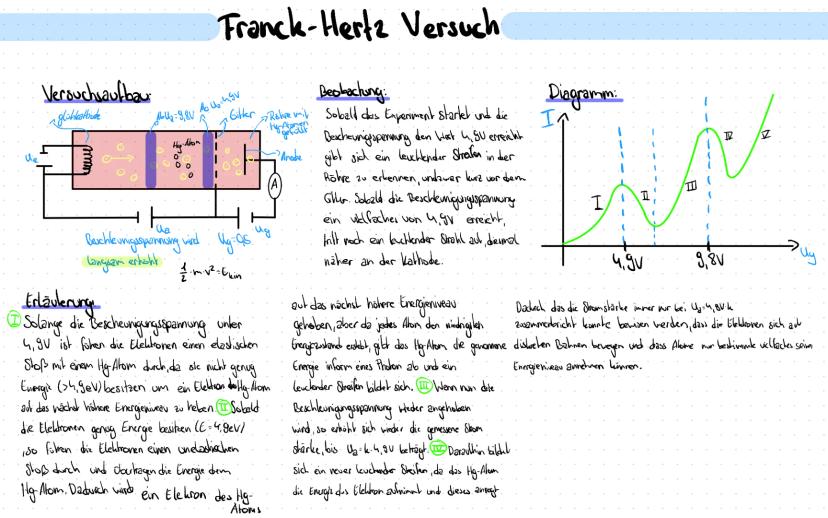 Franck-Hertz Versuch
Versuchsaufbau:
Glühkathode
Ab U₂=9,8V
Ab U₂=4,9V
Gitter
Röhre mit
Hg-Atomen
gefüllt
Hg-Atom
Anode
A
Beschleunigungsspannung wird
langsam erhöht
½·m·v²=Ekin
Beobachtung:
Sobald das Experiment startet und die
Bescheunigunsspannung den Wert 4,9V erreicht
gibt sich ein leuchtender Streifen in der
Röhre zu erkennen, undzwar kurz vor dem
Gitter. Sobald die Beschleunigungsspannung
ein vielfaches von 4,9V erreicht,
tritt noch ein leuchtender Strahl auf, diesmal
näher an der Kathode.
Diagramm:
I
I
II
III
IV
V
4,9V
9,8V
Erläuterung:
I Solange die Bescheunigungsspannung unter
4,9V ist führen die Elektronen einen elastischen
Stoß mit einem Hg-Atom durch, da sie nicht genug
Energie (>4,9eV) besitzen um ein Elektron des Hg-Atom
auf das nächst höhere Energieniveau zu heben. II Sobald
die Elektronen genug Energie besitzen (E=4,9eV)
, so führen die Elektronen einen unelastischen
Stoß durch und übertragen die Energie dem
Hg-Atom. Dadurch wird ein Elektron des Hg-
Atoms
auf das nächst höhere Energieniveau
gehoben, aber da jedes Atom den niedrigsten
Energiezustand anstrebt, gibt das Hg-Atom die genommene
Energie inform eines Photon ab und ein
leuchtender Streifen bildet sich. III Wenn nun die
Beschleunigungsspannung wieder angehoben
wird, so erhöht sich wieder die gemessene Strom
stärke, bis U₂=k·4,9V beträgt. IV Daraufhin bildet
sich ein neuer leuchtender Streifen, da das Hg-Atom
die Energie des Elektron aufnimmt und dieses anregt
Dadurch, das die Stromstärke immer nur bei
zusammenbricht konnte bewiesen werden, dass die Elektronen sich auf
diskreten Bahnen bewegen und dass Atome nur bestimmte vielfaches
Energieniveau annehmen können.